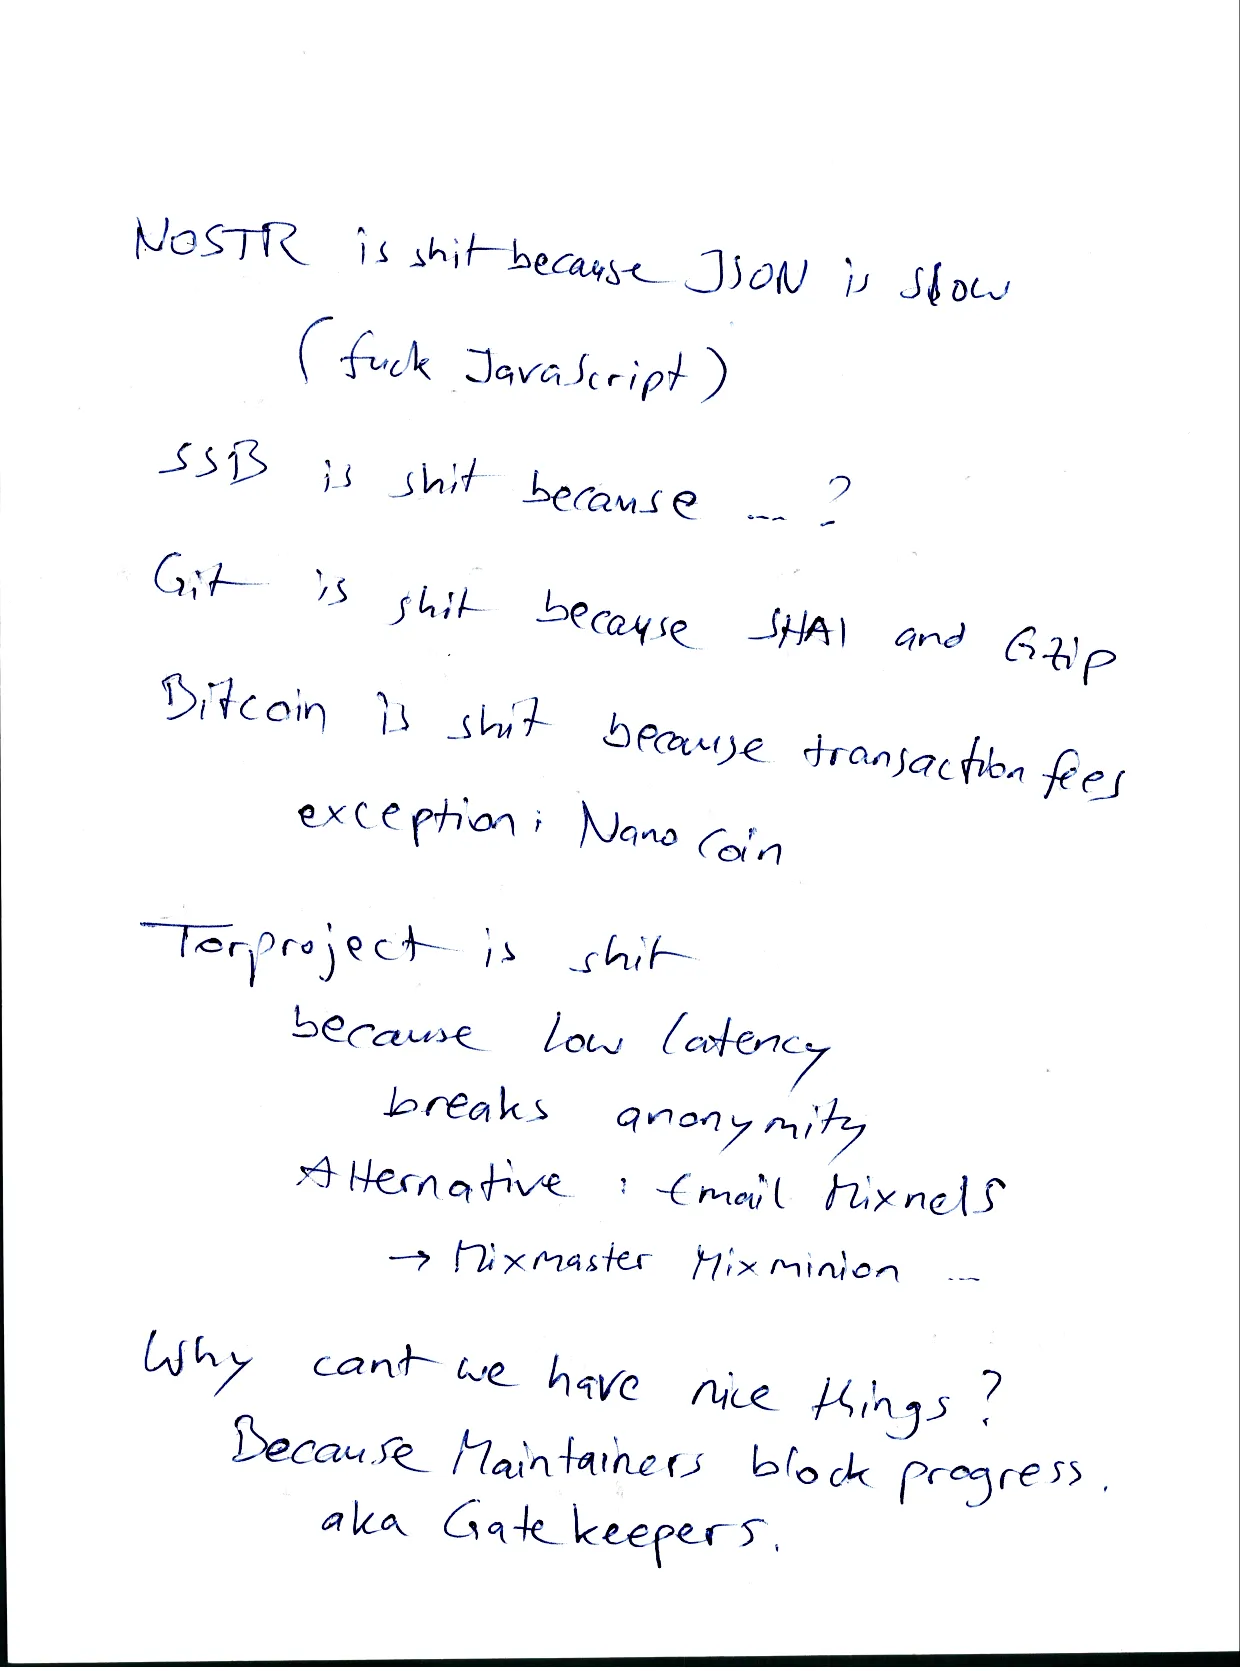 NOSTR is shit because JSON is slow
(fuck JavaScript)
SSB is shit because ... ?
Git is shit because SHA1 and Gzip
Bitcoin is shit because transaction fees
exception: Nano Coin
Torproject is shit
because low latency
breaks anonymity
Alternative : Email Mixnets
→ Mixmaster Mixminion ...
Why cant we have nice things?
Because Maintainers block progress.
aka Gatekeepers.